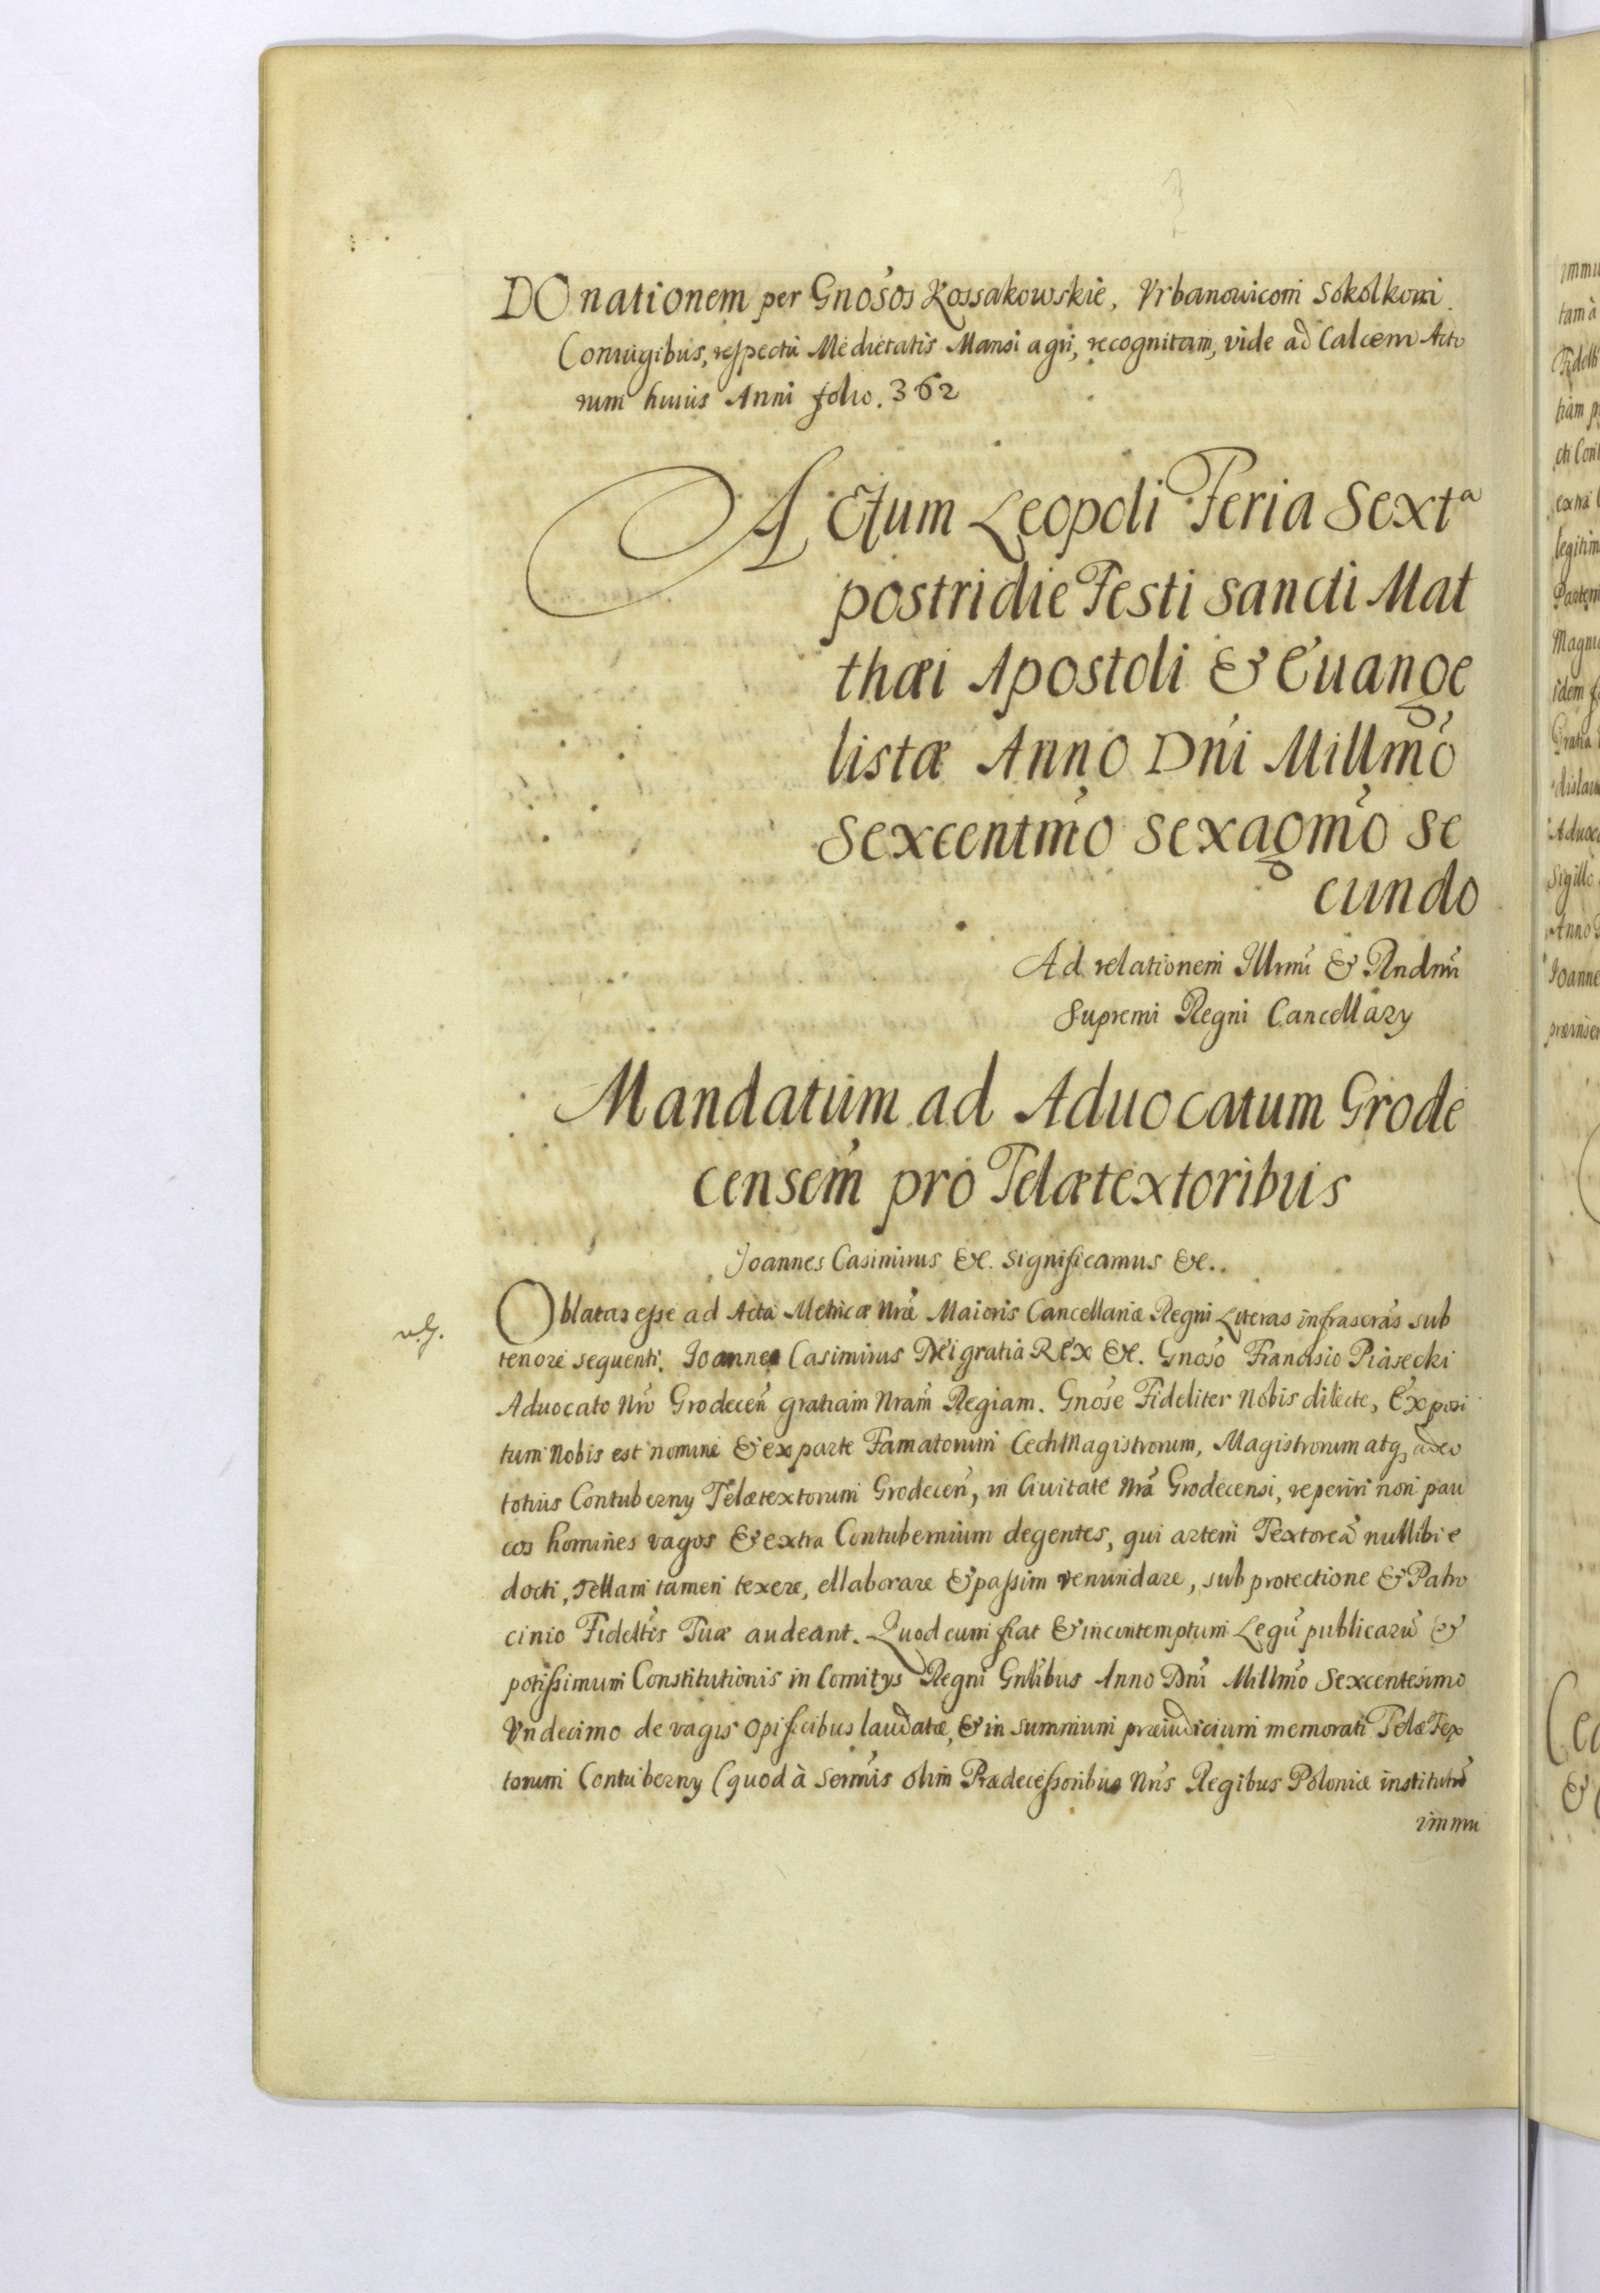 DOnationem per Gnosos Kossakowskie, Vrbanowiconi Sokolkoni
Coniugibus, respectu Medietatis Mansi agri, recognitam, vide ad Calcem Acto
rum huius Anni folio. 362
ACtum Leopoli Feria Sexta
postridie Festi Sancti Mat
thæi Apostoli & Euange
listæ Anno Dni Millmo
Sexcentmo Sexagmo Se
cundo
Ad relationem Illrmi & Rndmi
Supremi Regni Cancellary
Mandatum ad Aduocatum Grode
censem pro Telætextoribus
Joannes Casimirus &c. Significamus &c.
Oblatas esse ad Acta Metricæ Nræ Maioris Cancellariæ Regni Literas infrascras sub
tenore sequenti. Joannes Casimirus Dei gratia Rex &c. Gnoso Francisio Piasecki
Aduocato Nro Grodecen gratiam Nram Regiam. Gnose Fideliter Nobis dilecte, Exposi
tum Nobis est nomine & ex parte Famatorum CechMagistrorum, Magistrorum atq adeo
totius Contuberny Telætextorum Grodecen, in Ciuitate Nra Grodecensi, reperiri non pau
cos homines vagos & extra Contubernium degentes, qui artem Textorea nullibi e
docti, Tellam tamen texere, ellaborare & passim venundare, sub protectione & Patro
cinio Fideltis Tuæ audeant. Quod cum fiat & in contemptum Legu publicaru &
potissimum Constitutionis in Comitys Regni Gnlibus Anno Dni Millmo Sexcentesimo
Vndecimo de vagis Opificibus laudatæ, & in summum præiudicium memorati TelæTex
torum Contuberny (quod à Sermis olim Prædecessoribus Nris Regibus Poloniæ institutu
immu